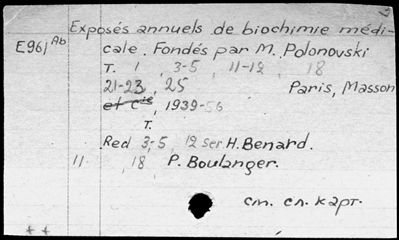 Exposés annuels de biochimie médi-
E961 Ab cale. Fondés par M. Polonovski
T. 1, 3-5, 11-12, 18
21-23, 25 Paris, Masson
et Cie, 1939-56
T.
Red 3-5, 12 ser H. Benard.
11, 18 P. Boulanger.
см. сл. карт.
++